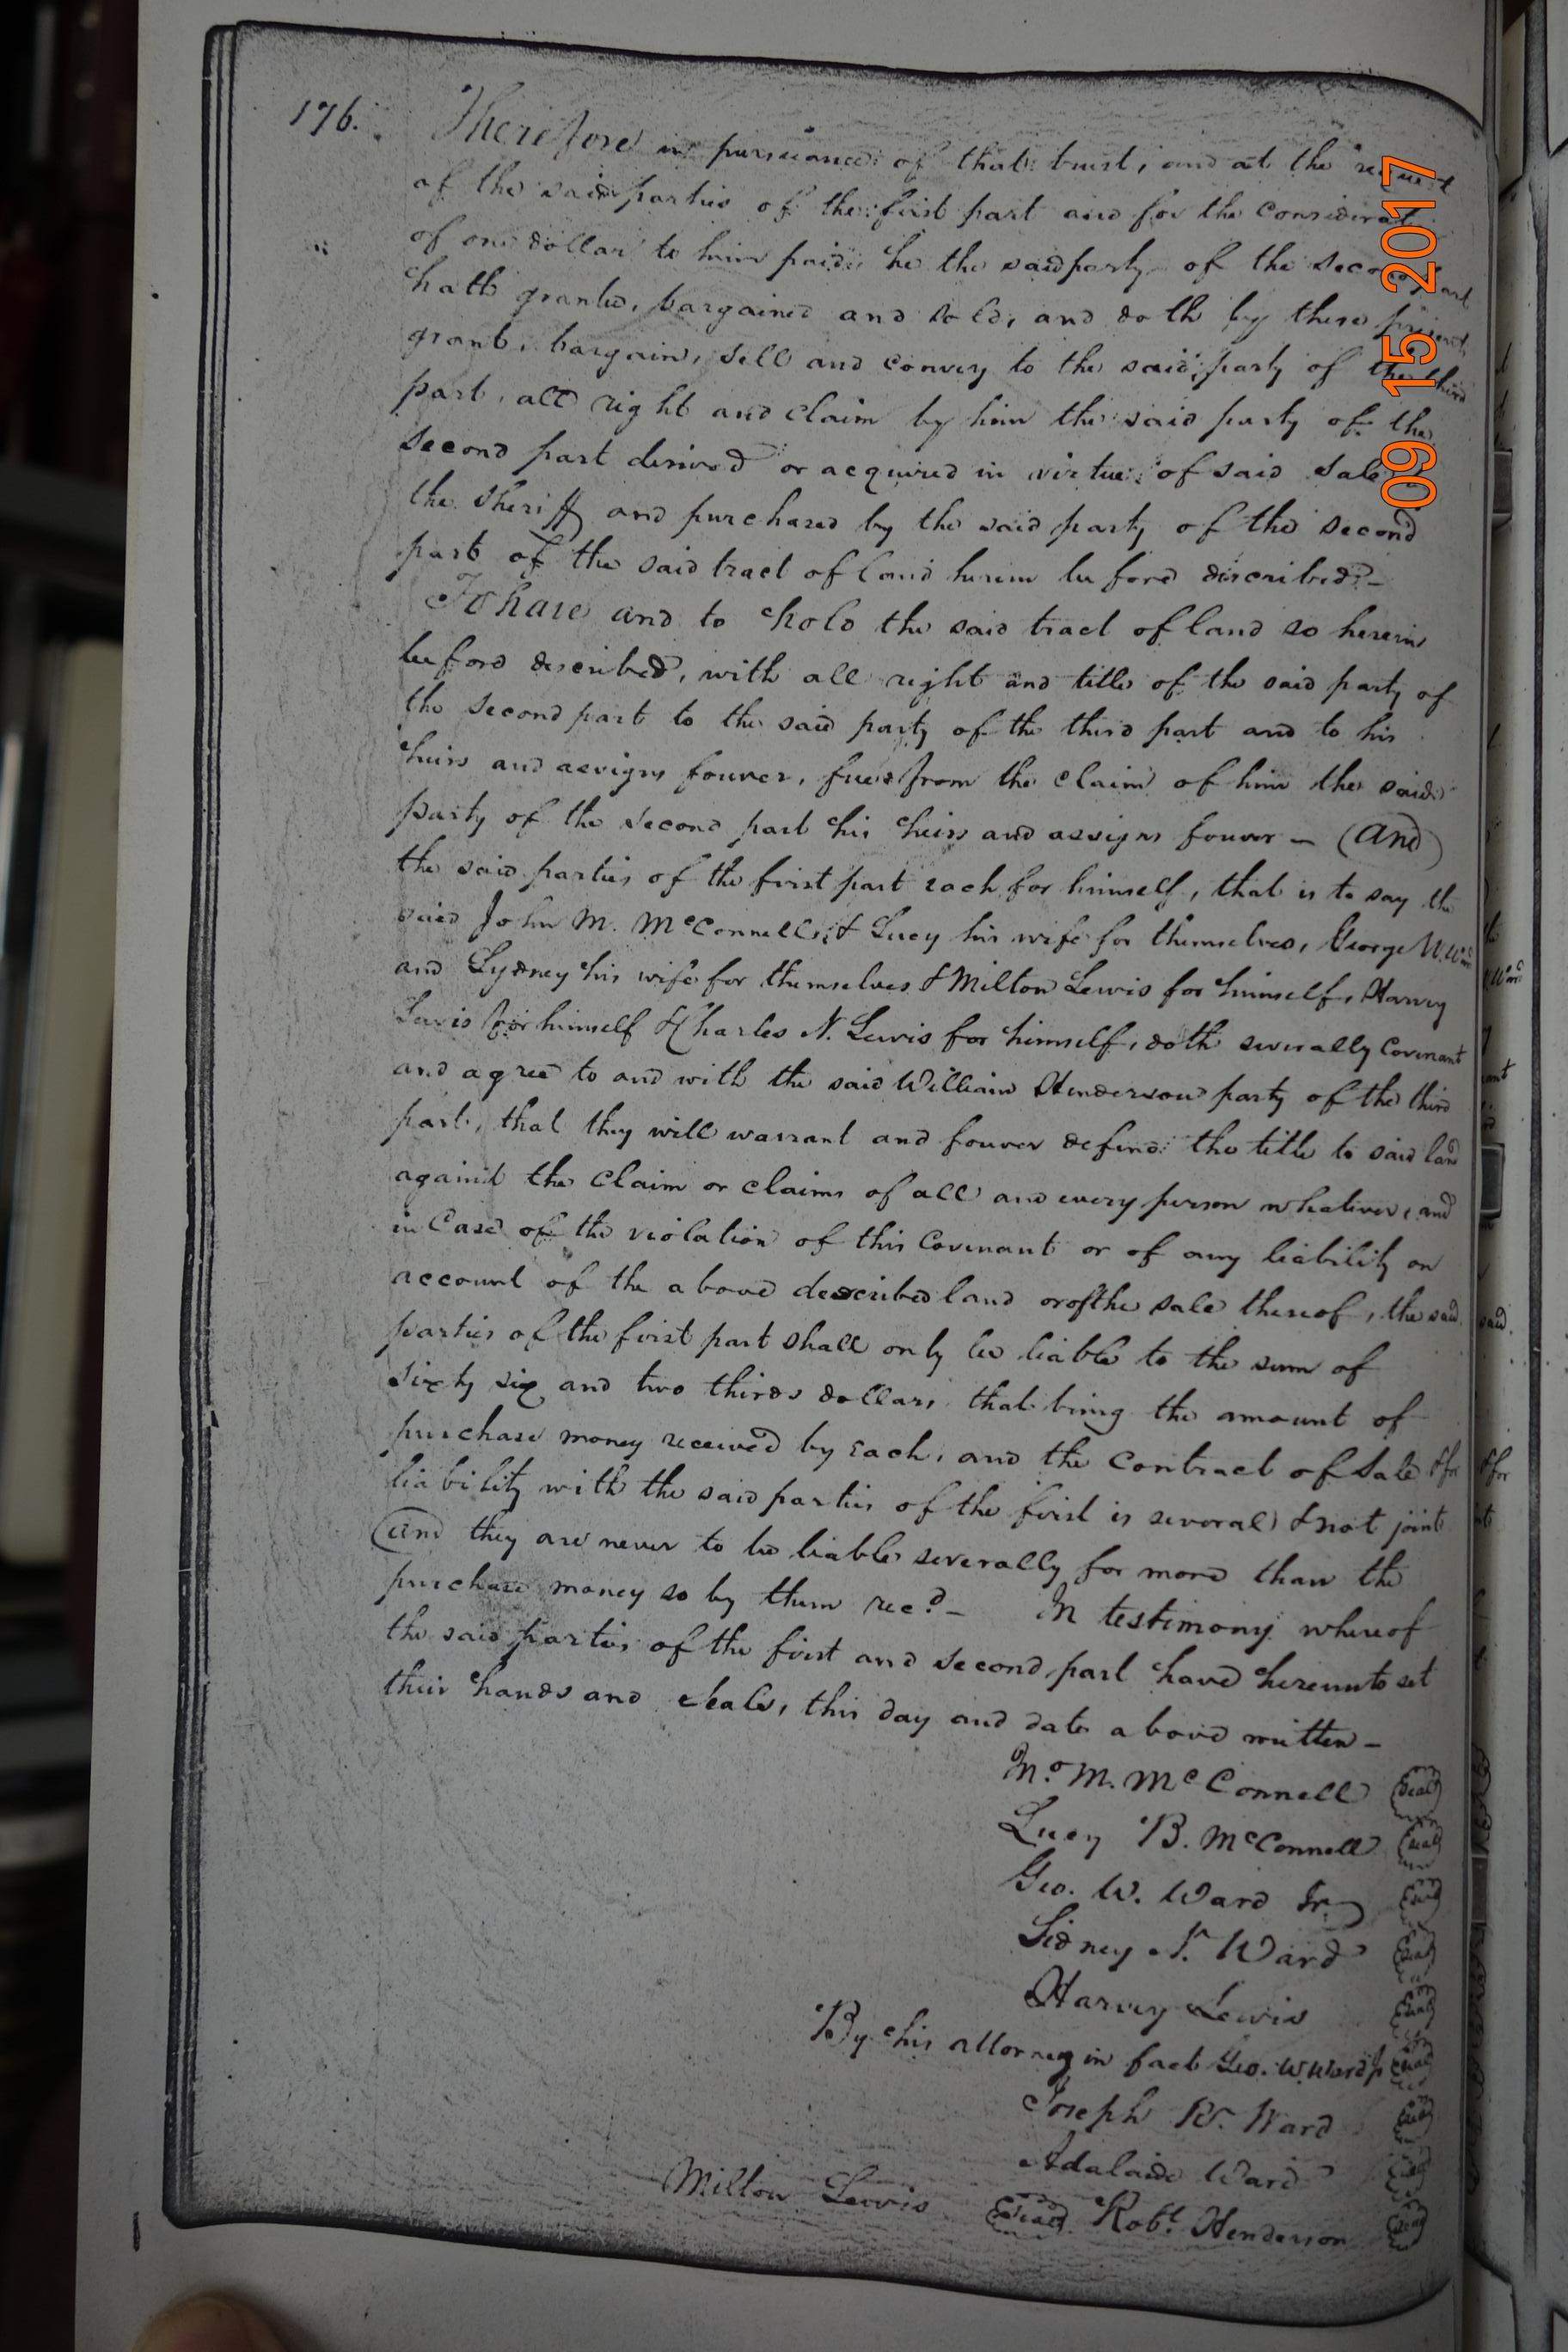 176.
Therefore in pursuance of that trust, and at the request
of the said parties of the first part and for the considerat
of one dollar to him paid, he the said party of the second part
hath granted, bargained and sold, and doth by these presents
grant, bargain, sell and convey to the said party of the third
part, all right and claim by him the said party of the
second part derived or acquired in virtue of said sale
the Sheriff and purchased by the said party of the second
part of the said tract of land herein before described -
To have and to hold the said tract of land so herein
before described, with all right and title of the said party of
the second part to the said party of the third part and to his
heirs and assigns forever, free from the claim of him the said
party of the second part his heirs and assigns forever - (and)
the said parties of the first part each for himself, that is to say the
said John M. McConnell & Lucy his wife for themselves, George W. Ward
and Sydney his wife for themselves & Milton Lewis for himself, Harvey
Lewis for himself & Charles N. Lewis for himself, doth severally Covenant
and agree to and with the said William Henderson party of the third
part, that they will warrant and forever defend the title to said land
against the claim or claims of all and every person whatever, and
in Case of the violation of this Covenant or of any liability on
account of the above described land or of the sale thereof, the said
parties of the first part shall only be liable to the sum of
sixty six and two thirds dollars that being the amount of
purchase money received by Each, and the Contract of Sale & for
liability with the said parties of the first is several & not joint
(and they are never to be liable severally for more than the
purchase money so by them recd. - In testimony whereof
the said parties of the first and second part have hereunto set
their hands and seals, this day and date above written -
Jno. M. McConnell (Seal)
Lucy B. McConnell (Seal)
Geo. W. Ward Jr. (Seal)
Sidney N. Ward (Seal)
Harvey Lewis (Seal)
By his attorney in fact Geo. W. Ward Jr (Seal)
Joseph W. Ward (Seal)
Adalaide Ward (Seal)
Milton Lewis (Seal) Robt. Henderson (Seal)
09 15 2017